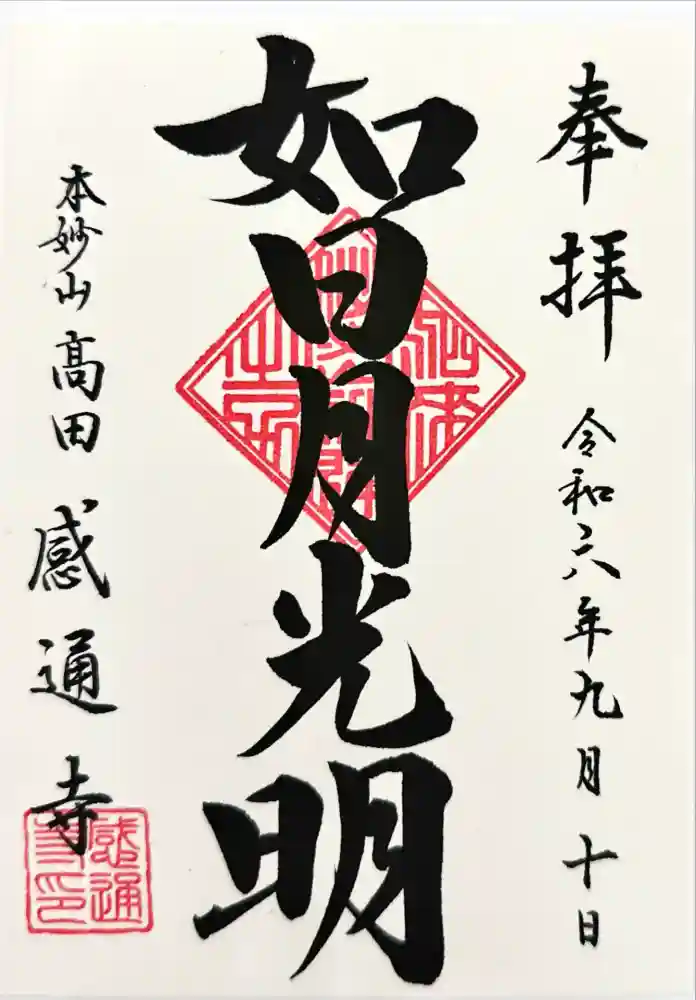 奉拝 令和六年九月十日
如日月光明
本妙山 高田 感通寺
感通寺印